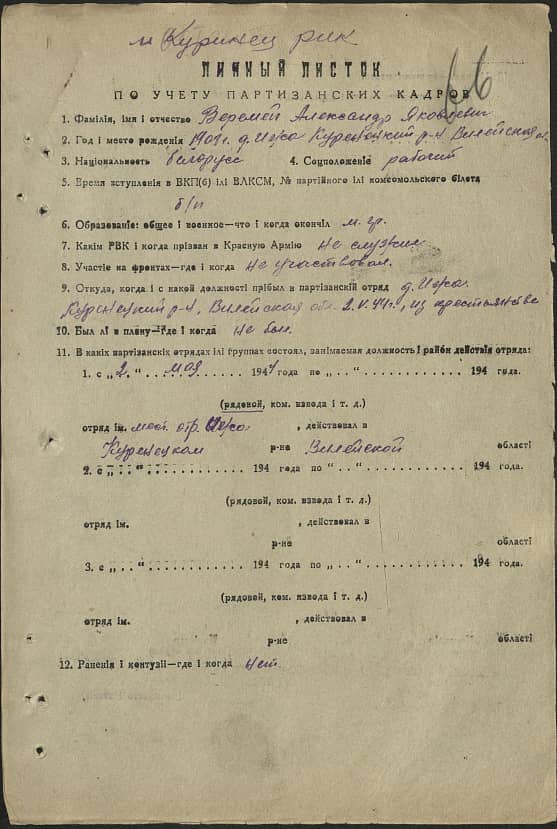 м Куринец рик
66
ЛИЧНЫЙ ЛИСТОК
ПО УЧЕТУ ПАРТИЗАНСКИХ КАДРОВ
1. Фамілія, імя і отчество Веремей Александр Яковлевич
2. Год і место рождения 1901г. д. Ижа Куренецкий р-н Вилейская об.
3. Національность белорусс 4. Соцположение рабочий
5. Время вступления в ВКП(б) ілі ВЛКСМ, № партійного ілі комсомольского білета
б/п
6. Образованіе: общее і военное—что і когда окончіл м. гр.
7. Какім РВК і когда прізван в Красную Армію не служил
8. Участіе на фронтах—где і когда не участвовал.
9. Откуда, когда і с какой должності прібыл в партизанскій отряд д. Ижа
Куренецкий р-н, Вилейская обл. 2.V.44г., из крестьянства
10. Был лі в плену—где і когда не был.
11. В какіх партізанскіх отрядах ілі группах состоял, занімаемая должность і район действія отряда:
1. с „2.“ мая 1944 года по „ . . “ 194 года.
(рядовой, ком. взвода і т. д.)
отряд ім. мест. отр. Ижа , действовал в
Куренецком р-не Вилейской області
2. с „ . . “ 194 года по „ . . “ 194 года.
(рядовой, ком. взвода і т. д.)
отряд ім. , действовал в
р-не області
3. с „ . . “ 194 года по „ . . “ 194 года.
(рядовой, ком. взвода і т. д.)
отряд ім. , действовал в
р-не області
12. Раненія і контузіі—где і когда нет